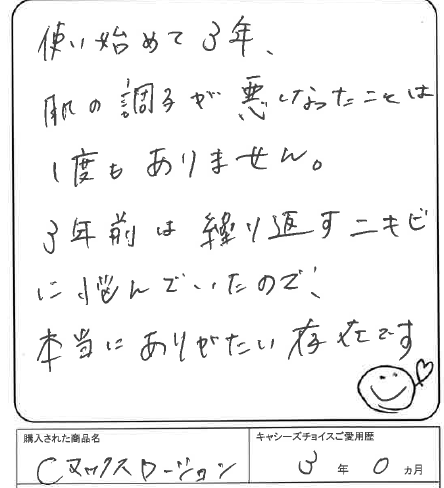 使い始めて3年、
肌の調子が悪くなったことは
1度もありません。
3年前は繰り返すニキビ
に悩んでいたので、
本当にありがたい存在です
購入された商品名
キャシーズチョイスご愛用歴
Cマックスローション
3年0ヵ月